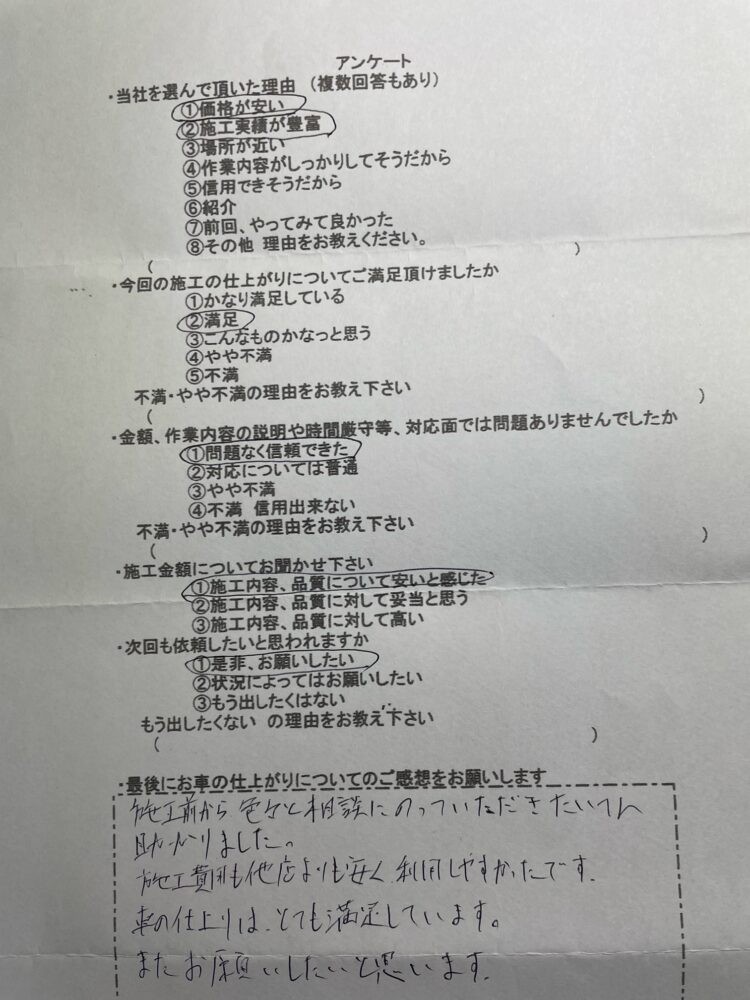 アンケート
・当社を選んで頂いた理由 （複数回答もあり）
①価格が安い
②施工実績が豊富
③場所が近い
④作業内容がしっかりしてそうだから
⑤信用できそうだから
⑥紹介
⑦前回、やってみて良かった
⑧その他 理由をお教えください。
（ ）
・今回の施工の仕上がりについてご満足頂けましたか
①かなり満足している
②満足
③こんなものかなっと思う
④やや不満
⑤不満
不満・やや不満の理由をお教え下さい
（ ）
・金額、作業内容の説明や時間厳守等、対応面では問題ありませんでしたか
①問題なく信頼できた
②対応については普通
③やや不満
④不満 信用出来ない
不満・やや不満の理由をお教え下さい
（ ）
・施工金額についてお聞かせ下さい
①施工内容、品質について安いと感じた
②施工内容、品質に対して妥当と思う
③施工内容、品質に対して高い
・次回も依頼したいと思われますか
①是非、お願いしたい
②状況によってはお願いしたい
③もう出したくはない
もう出したくない の理由をお教え下さい
（ ）
・最後にお車の仕上がりについてのご感想をお願いします
施工前から色々と相談にのっていただき たいへん
助かりました。
施工費用も他店よりも安く利用しやすかったです.
車の仕上りは、とても満足しています。
またお願いしたいと思います.